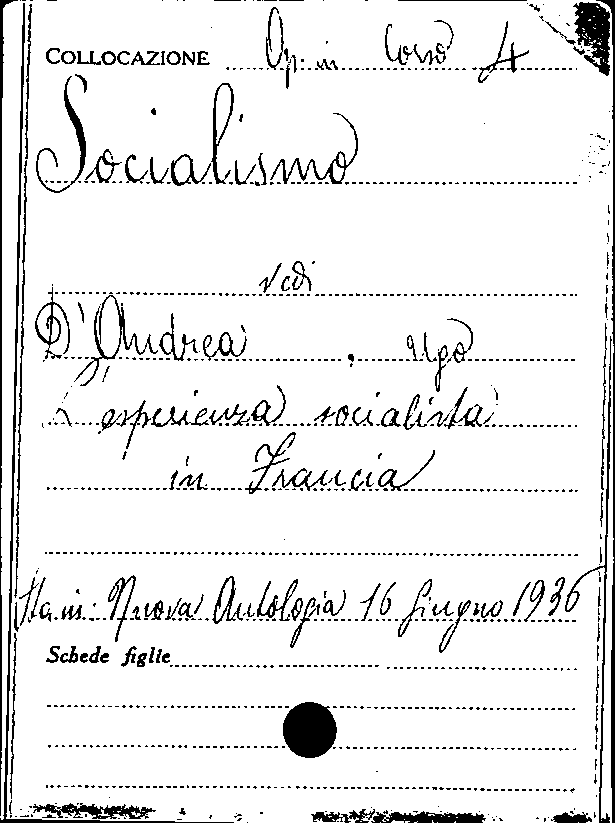 COLLOCAZIONE Op. in Corso 4
Socialismo
vedi
D'Andrea, Ugo
L'esperienza socialista
in Francia
Sta in: Nuova Antologia 16 Giugno 1936
Schede figlie